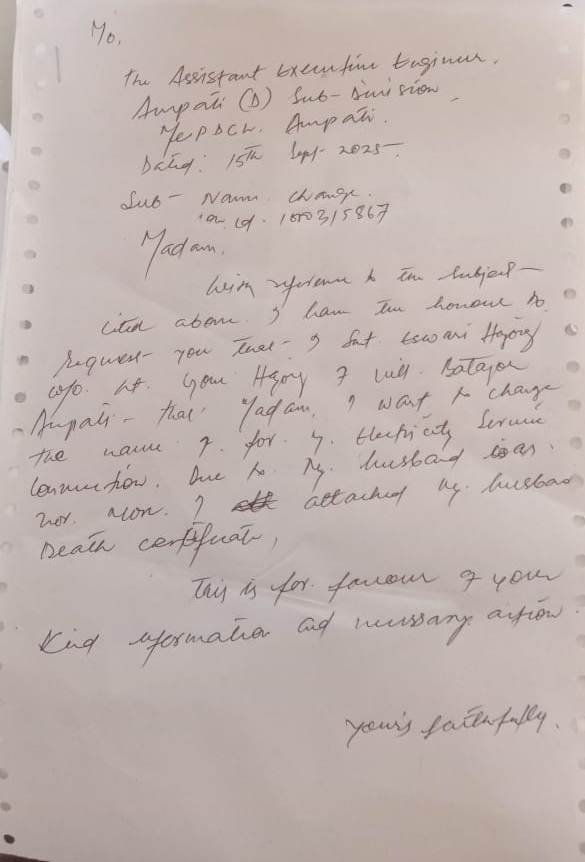 To,
The Assistant Executive Engineer,
Ampati (D) Sub-Division,
MePDCL. Ampati.
Dated: 15th Sept 2025.
Sub- Name change.
Con. Id. 100315867
Madam,
With reference to the Subject
Cited above. I have the honour to
request you that I Smt. Eswari Hajong
w/o. Lt. Hajong of vill. Batajor
Ampati - that Madam, I want to change
the name of for my Electricity Service
Connection. Due to My husband is
nor. mor. I attached my husband
Death certificate,
This is for favour of your
Kind information and necessary action.
Your's faithfully.